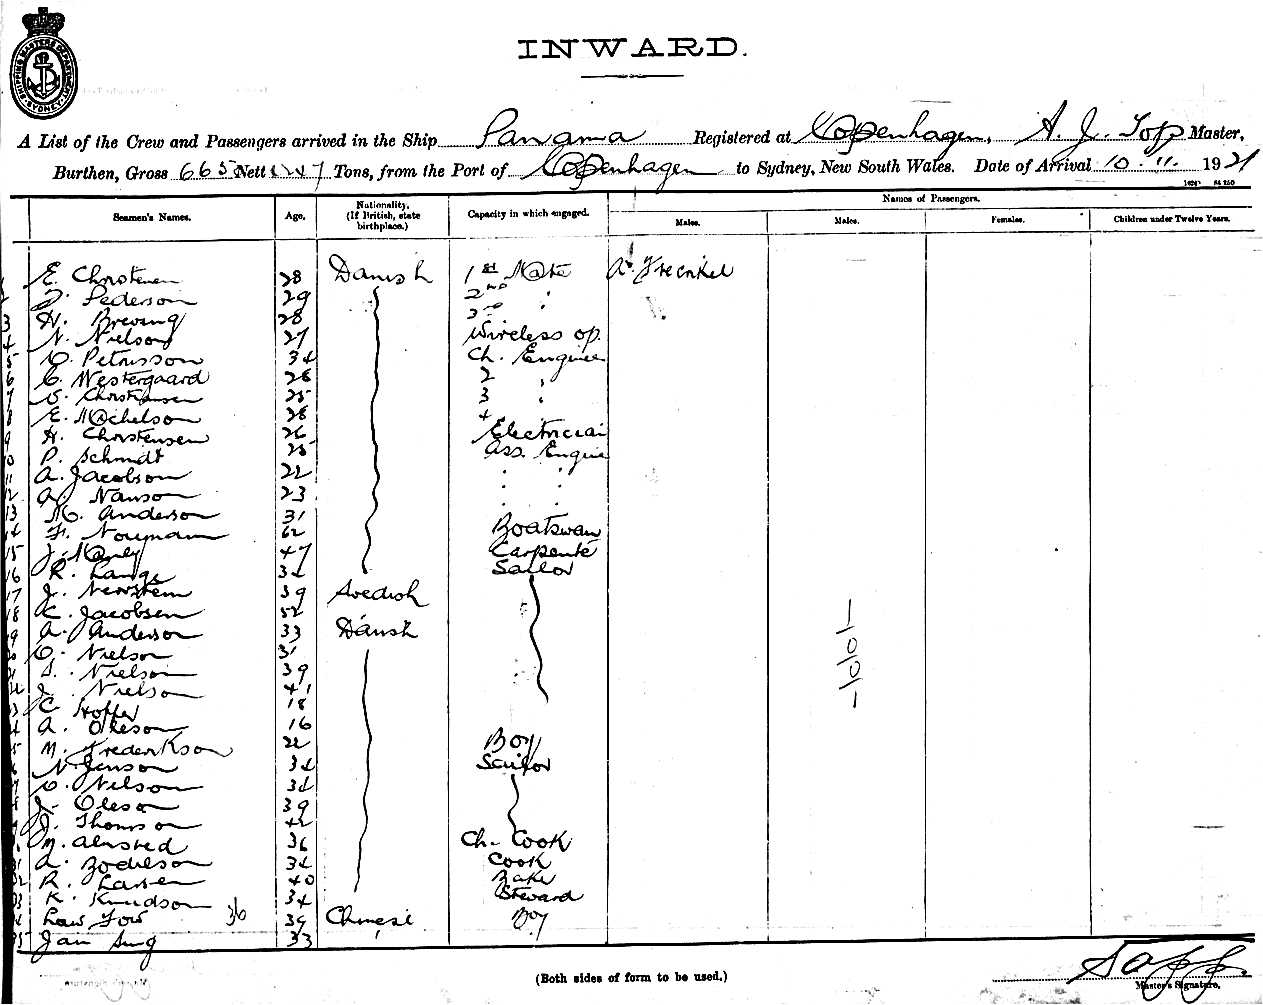 SHIPPING MASTER'S DEPARTMENT SYDNEY
INWARD.
A List of the Crew and Passengers arrived in the Ship Panama Registered at Copenhagen, A. J. Topp Master,
Burthen, Gross 665 Nett Tons, from the Port of Copenhagen to Sydney, New South Wales. Date of Arrival 10.11. 1921
Seamen's Names. Age. Nationality. (If British, state birthplace.) Capacity in which engaged. Names of Passengers.
Males. Males. Females. Children under Twelve Years.
E. Christensen 28 Danish 1st Mate A. Frenkel
2 Pederson 29 2nd "
3 H. 28 3rd
4 N. Nielson 27 Wireless op.
5 Petersson 34 Ch. Enginee
6 C. Westergaard 28 2 "
7 Christiansen 25 3 "
8 E. Michelson 28 4
9 H. Christensen 26 Electrician
10 P. Schmidt 25 Ass. Engine
11 A. Jacobson 22 " "
12 A. Nanson 23 " "
13 M. Anderson 31 Boatswan
14 62 Carpente
15 J. 47 Sailor
16 R. Lange 34
17 J. 39 Swedish
18 C. Jacobsen 52
19 A. Anderson 33 Danish
O. Nielson 31
Nielson 39
J. Nielson 41
C. 18
A. Oleson 16
M. Frederikson 22 Boy
N. Jenson 34 Sailor
O. Nilson 34
J. Oleson 39
J. Thomson 42
M. Almsted 36 Ch. Cook
A. 34 Cook
R. Larsen 40 Bake
K. Knudson 34 Steward
Law Tow 36 39 Chinese Boy
Jan Sung 33
(Both sides of form to be used.)
Topp.
Master's Signature.